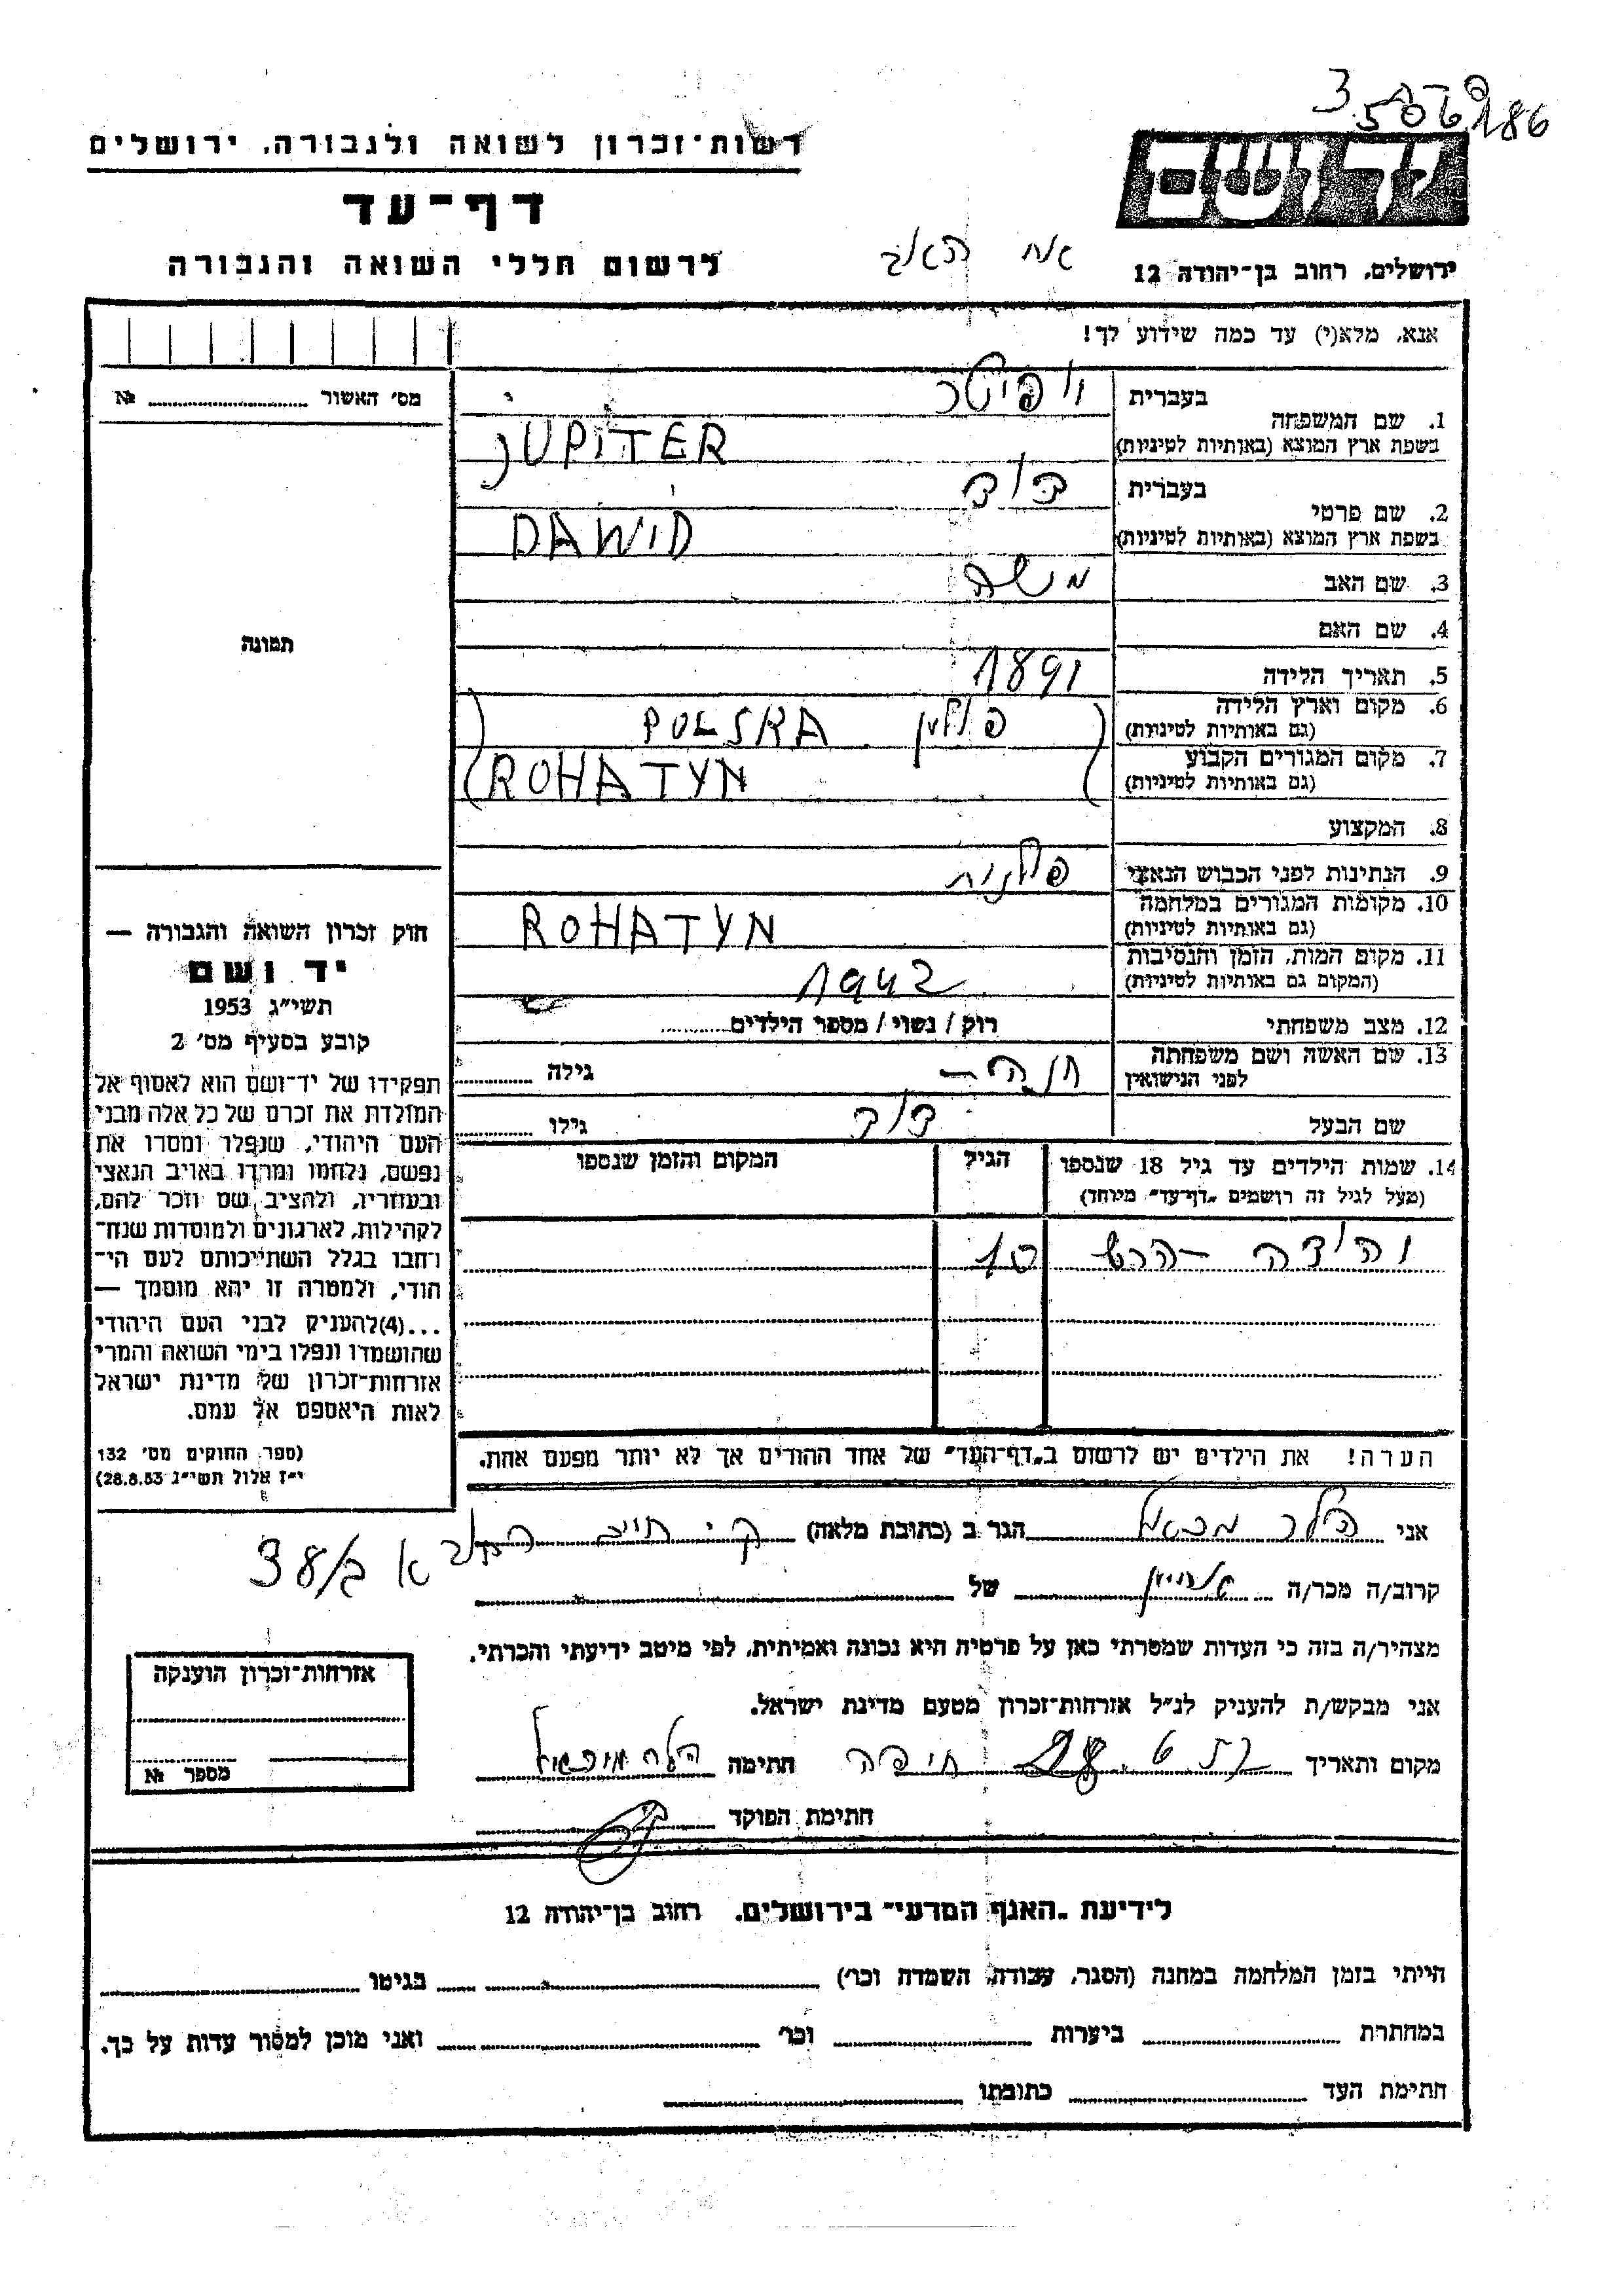 186
רשות־זכרון לשואה ולגבורה, ירושלים
דף־עד
לרשום חללי השואה והגבורה
ירושלים, רחוב בן־יהודה 12
אנא, מלא(י) עד כמה שידוע לך!
מס' האשור № ........
תמונה
1. שם המשפחה
בעברית
בשפת ארץ המוצא (באותיות לטיניות)
JUPITER
2. שם פרטי
בעברית דוד
בשפת ארץ המוצא (באותיות לטיניות)
DAWID
3. שם האב משה
4. שם האם
5. תאריך הלידה 1891
6. מקום וארץ הלידה פולין POLSKA
(גם באותיות לטיניות)
7. מקום המגורים הקבוע ROHATYN
(גם באותיות לטיניות)
8. המקצוע
9. הנתינות לפני הכבוש הנאצי פולנית
10. מקומות המגורים במלחמה ROHATYN
(גם באותיות לטיניות)
11. מקום המות, הזמן והנסיבות 1942
(המקום גם באותיות לטיניות)
12. מצב משפחתי רוק / נשוי / מספר הילדים........
13. שם האשה ושם משפחתה
לפני הנישואין
חנה — גילה ........
שם הבעל דוד גילו ........
14. שמות הילדים עד גיל 18 שנספו
(מעל לגיל זה רושמים „דף־עד" מיוחד)
הגיל
המקום והזמן שנספו
10
הערה! את הילדים יש לרשום ב„דף־העד" של אחד ההורים אך לא יותר מפעם אחת.
חוק זכרון השואה והגבורה —
יד ושם
תשי"ג 1953
קובע בסעיף מס' 2
תפקידו של יד־ושם הוא לאסוף אל
המולדת את זכרם של כל אלה מבני
העם היהודי, שנפלו ומסרו את
נפשם, נלחמו ומרדו באויב הנאצי
ובעוזריו, ולהציב שם וזכר להם,
לקהילות, לארגונים ולמוסדות שנח־
רבו בגלל השתייכותם לעם הי־
הודי, ולמטרה זו יהא מוסמך —
...(4) להעניק לבני העם היהודי
שהושמדו ונפלו בימי השואה והמרי
אזרחות־זכרון של מדינת ישראל
לאות היאספם אל עמם.
(ספר החוקים מס' 132
י"ז אלול תשי"ג 28.8.53)
אני הלר מכאל הגר ב (כתובת מלאה) 38/
קרוב/ה מכר/ה של
מצהיר/ה בזה כי העדות שמסרתי כאן על פרטיה היא נכונה ואמיתית, לפי מיטב ידיעתי והכרתי.
אני מבקש/ת להעניק לנ"ל אזרחות־זכרון מטעם מדינת ישראל.
מקום ותאריך חיפה חתימה הלר מיכאל
חתימת הפוקד
אזרחות־זכרון הוענקה
מספר №
לידיעת „האגף המדעי" בירושלים, רחוב בן־יהודה 12
הייתי בזמן המלחמה במחנה (הסגר, עבודה, השמדה וכו') ........ בגיטו ........
במחתרת ........ ביערות ........ וכו' ........ ואני מוכן למסור עדות על כך.
חתימת העד ........ כתובתו ........